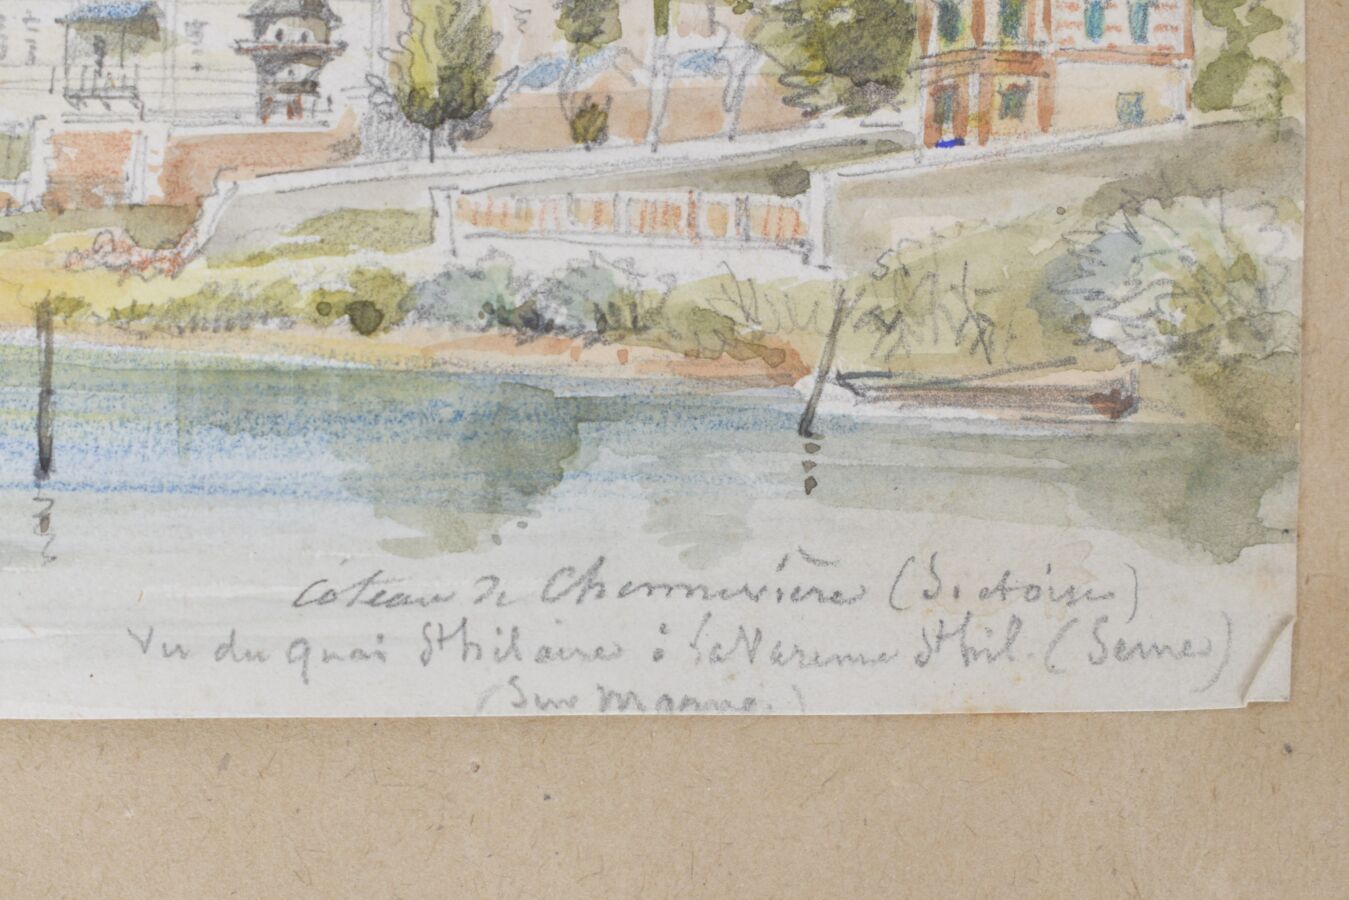 Côteau de Chennevière (S. et Oise)
Vu du quai St hilaire à la Varenne St hil. (Seine)
(Sur Marne.)